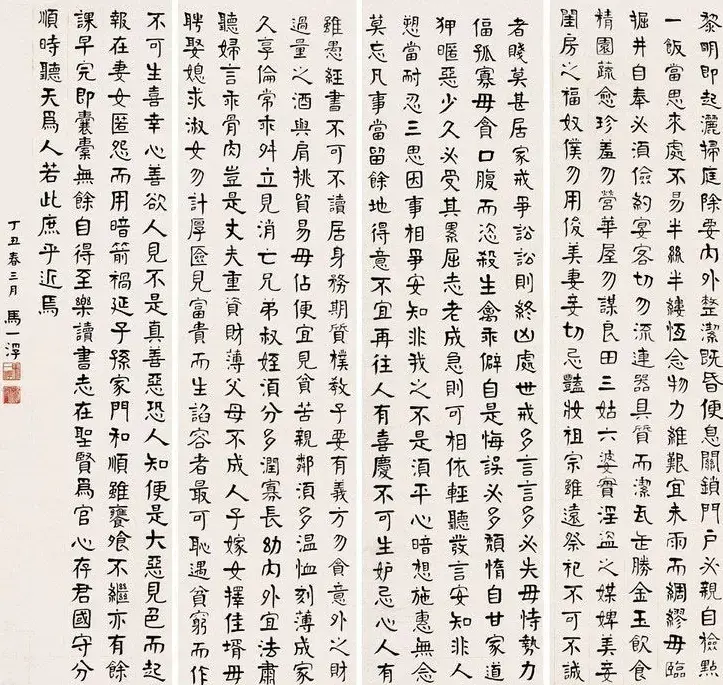 黎明即起灑掃庭除要內外整潔既昏便息關鎖門戶必親自檢點
一飯當思來處不易半絲半縷恆念物力維艱宜未雨而綢繆毋臨
掘井自奉必須儉約宴客切勿流連器具質而潔瓦缶勝金玉飲食
精園蔬愈珍羞勿營華屋勿謀良田三姑六婆實淫盜之媒婢美妾
閨房之福奴僕勿用俊美妻妾切忌豔妝祖宗雖遠祭祀不可不誠
者賤莫甚居家戒爭訟訟則終凶處世戒多言言多必失毋恃勢力
偪孤寡毋貪口腹而恣殺生禽乖僻自是悔誤必多頹惰自甘家道
狎暱惡少久必受其累屈志老成急則可相依輕聽發言安知非人
愬當耐忍三思因事相爭安知非我之不是須平心暗想施惠無念
莫忘凡事當留餘地得意不宜再往人有喜慶不可生妒忌心人有
雖愚經書不可不讀居身務期質樸教子要有義方勿貪意外之財
過量之酒與肩挑貿易毋佔便宜見貧苦親鄰須多溫恤刻薄成家
久享倫常乖舛立見消亡兄弟叔姪須分多潤寡長幼內外宜法肅
聽婦言乖骨肉豈是丈夫重資財薄父母不成人子嫁女擇佳壻毋
聘娶媳求淑女勿計厚匳見富貴而生諂容者最可恥遇貧窮而作
不可生喜幸心善欲人見不是真善惡恐人知便是大惡見色而起
報在妻女匿怨而用暗箭禍延子孫家門和順雖饔飧不繼亦有餘
課早完即囊橐無餘自得至樂讀書志在聖賢爲官心存君國守分
順時聽天爲人若此庶乎近焉
丁丑春三月 馬一浮